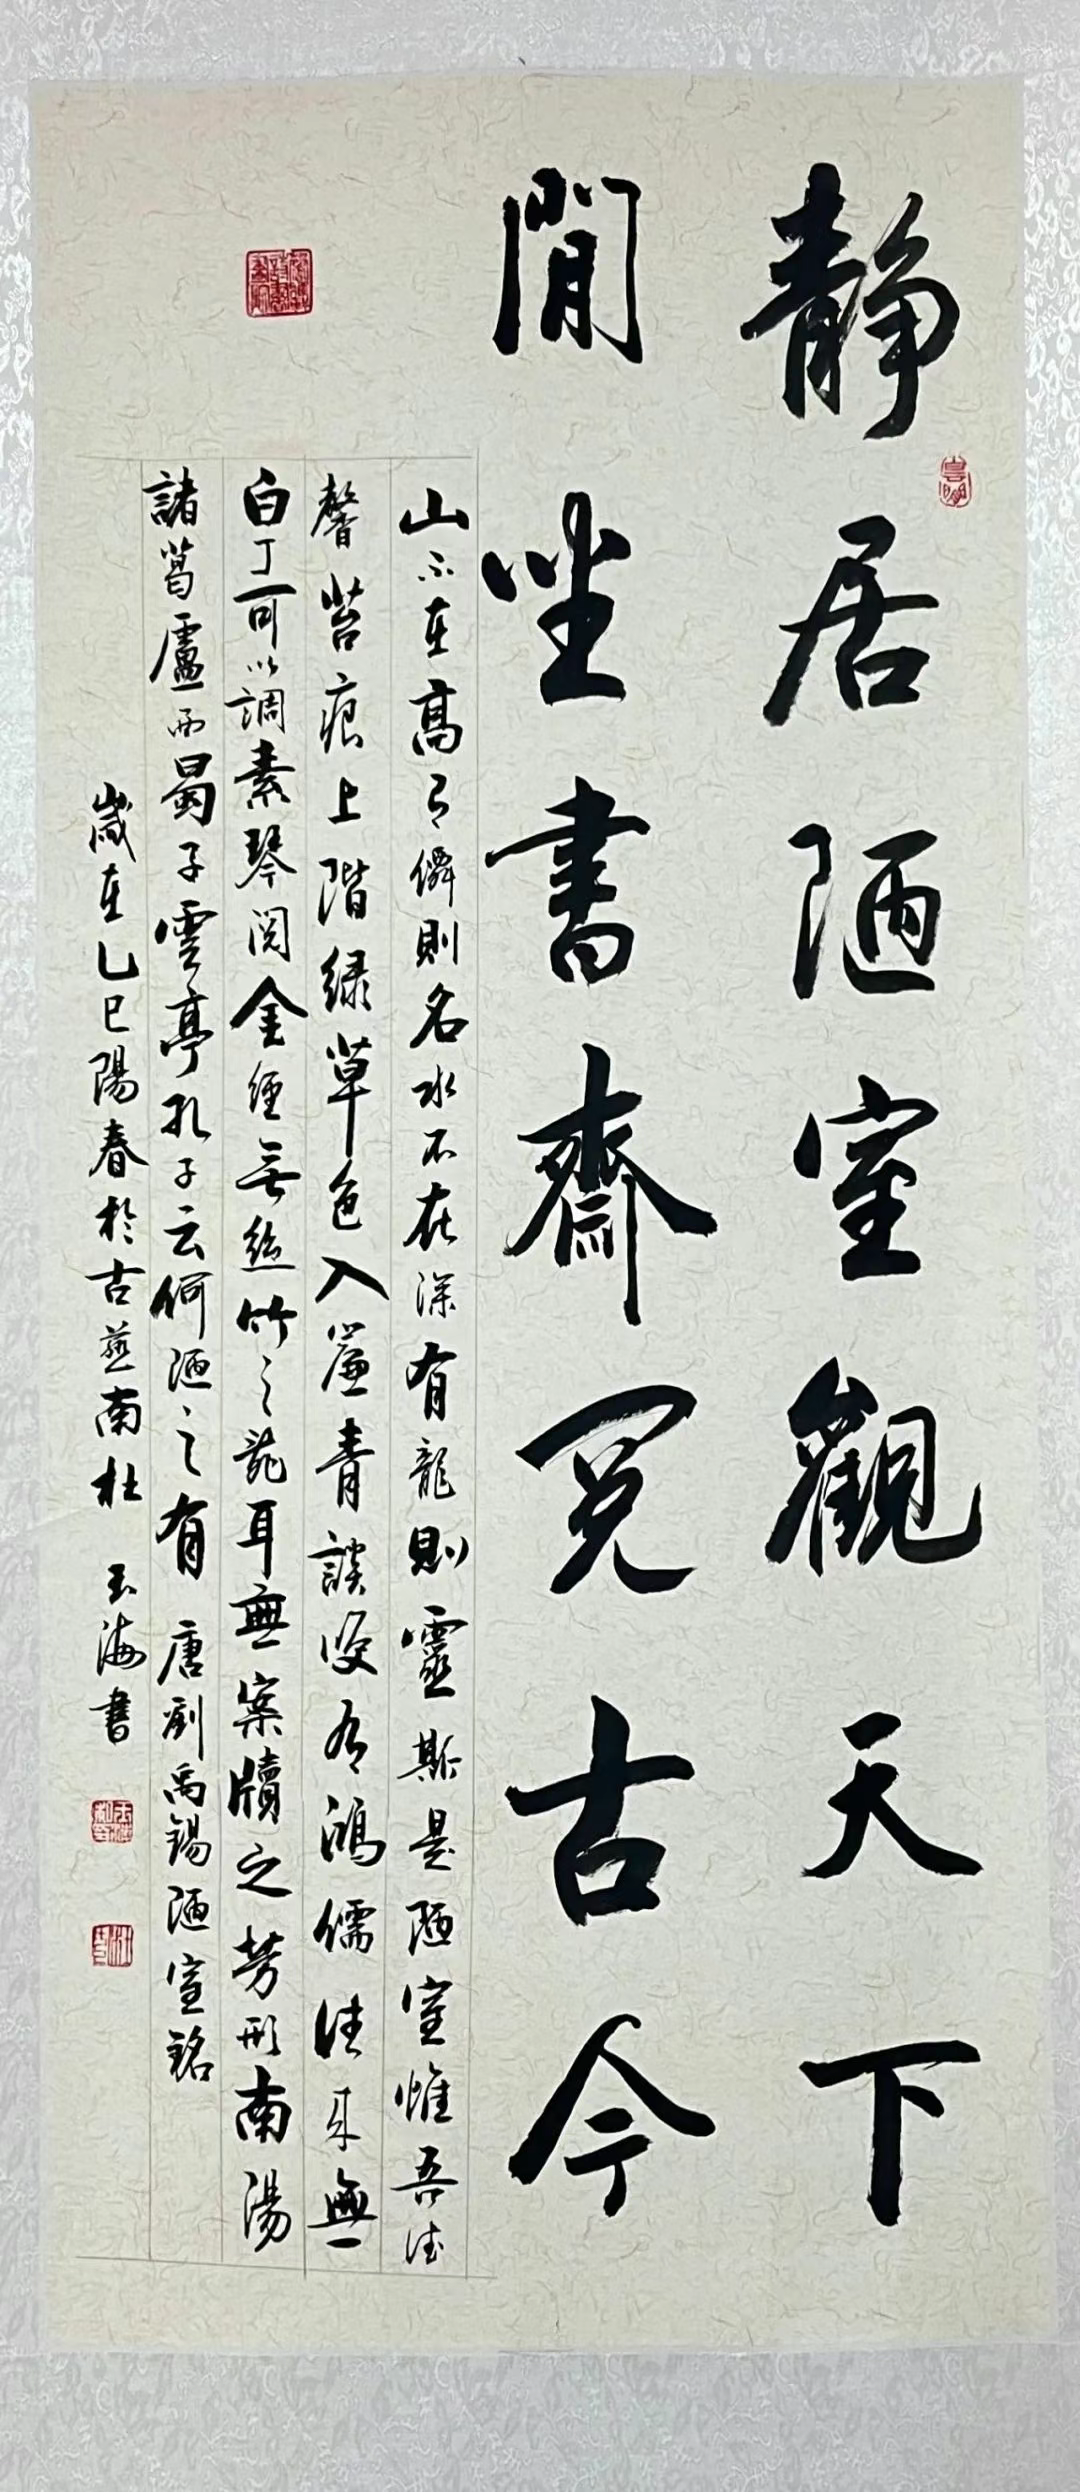 靜居陋室觀天下
閒坐書齋閱古今
山不在高有僊則名水不在深有龍則靈斯是陋室惟吾德
馨苔痕上階綠草色入簾青談笑有鴻儒往來無
白丁可以調素琴閱金經無絲竹之亂耳無案牘之勞形南陽
諸葛廬西蜀子雲亭孔子云何陋之有 唐劉禹錫陋室銘
歲在乙巳陽春於古燕南杜 玉海書